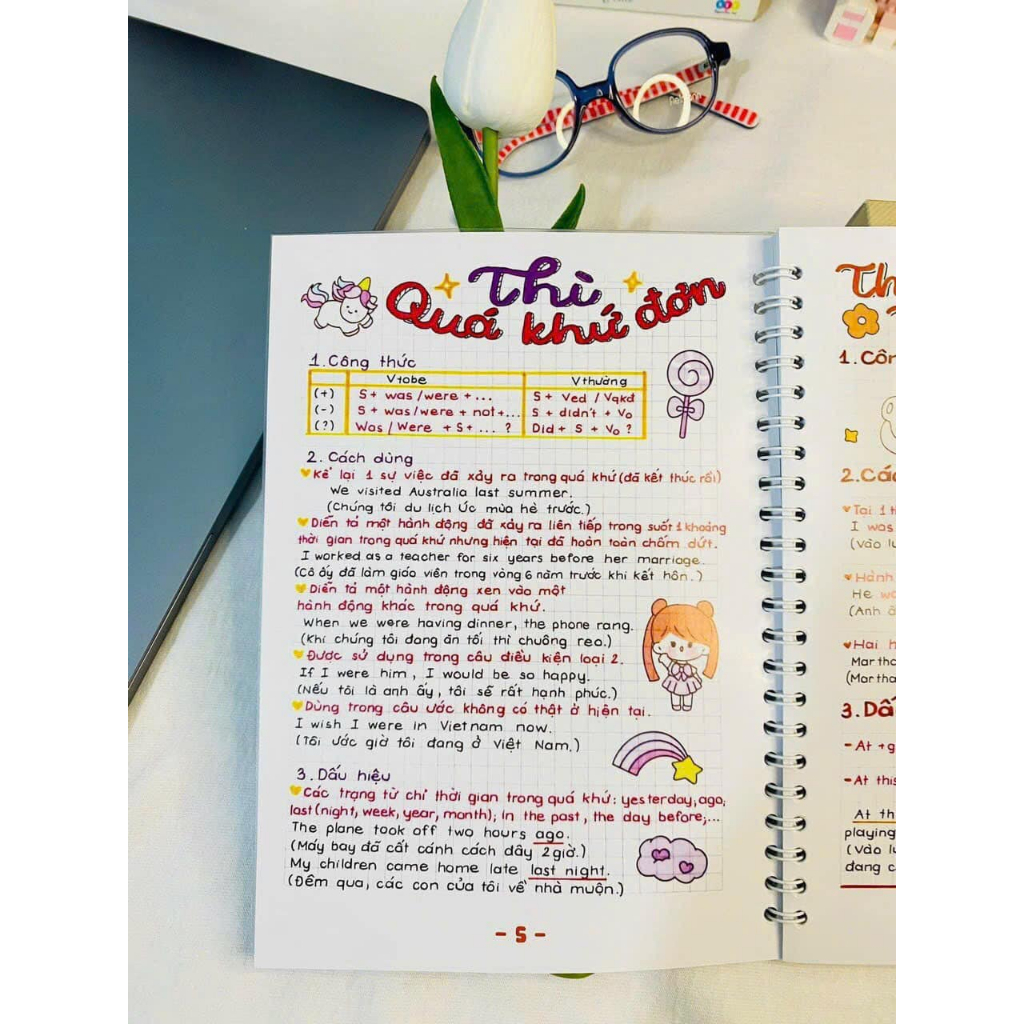 Thì
Quá khứ đơn
1. Công thức
Vtobe Vthường
(+) S + was/were + ... S + Ved / Vqkđ
(-) S + was/were + not +... S + didn't + Vo
(?) Was/Were + S + ... ? Did + S + Vo ?
2. Cách dùng
Kể lại 1 sự việc đã xảy ra trong quá khứ (đã kết thúc rồi)
We visited Australia last summer.
(Chúng tôi du lịch Úc mùa hè trước.)
Diễn tả một hành động đã xảy ra liên tiếp trong suốt 1 khoảng
thời gian trong quá khứ nhưng hiện tại đã hoàn toàn chấm dứt.
I worked as a teacher for six years before her marriage.
(Cô ấy đã làm giáo viên trong vòng 6 năm trước khi kết hôn.)
Diễn tả một hành động xen vào một
hành động khác trong quá khứ.
When we were having dinner, the phone rang.
(Khi chúng tôi đang ăn tối thì chuông reo.)
Được sử dụng trong câu điều kiện loại 2.
If I were him, I would be so happy.
(Nếu tôi là anh ấy, tôi sẽ rất hạnh phúc.)
Dùng trong câu ước không có thật ở hiện tại.
I wish I were in Vietnam now.
(Tôi ước giờ tôi đang ở Việt Nam.)
3. Dấu hiệu
Các trạng từ chỉ thời gian trong quá khứ: yesterday, ago,
last (night, week, year, month); in the past, the day before,...
The plane took off two hours ago.
(Máy bay đã cất cánh cách đây 2 giờ.)
My children came home late last night.
(Đêm qua, các con của tôi về nhà muộn.)
- 5 -
Th
1. Côn
2. Các
Tại 1 t
I was
(Vào lú
Hành
He wa
(Anh ấ
Hai h
Martha
(Martha
3. Dấ
- At + g
- At this
At th
playing
(Vào lú
đang c